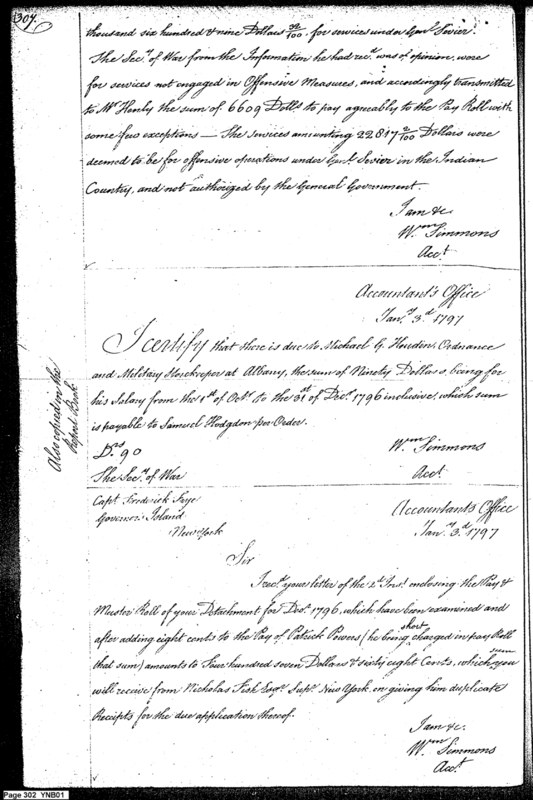 307.
thousand six hundred & nine Dollars 32/100 for services under Genl. Sevier.
The Secy. of War from the Information he had recd. was of opinion, were
for services not engaged in Offensive Measures, and accordingly transmitted
to Mr Henly the sum of 6609 Dolls. to pay agreeably to the Pay Roll with
some few exceptions — The services amounting 22817 2/100 Dollars were
deemed to be for offensive operations under Genl. Sevier in the Indian
Country, and not authorized by the General Government.
I am &c.
Wm. Simmons
Acct.
Accountant's Office
Jany. 3d. 1797
I certify that there is due to Michael G. Houdin, Ordnance
and Military Storekeeper at Albany, the sum of Ninety Dollars, being for
his Salary from the 1st of Octr. to the 31st of Decr. 1796 inclusive, which sum
is payable to Samuel Hodgdon per Order.
Drs. 90
Wm. Simmons
The Secy. of War
Acct.
Also copied in the
Report Book
Capt. Frederick Frye
Governors Island
New York
Accountant's Office
Jany. 3d. 1797
Sir
I recd. your letter of the 2d. Inst. enclosing the Pay &
Muster Roll of your Detachment for Decr. 1796, which have been examined and
after adding eight cents to the Pay of Patrick Powers (he being short charged in pay Roll
that sum) amounts to Four hundred seven Dollars & sixty eight Cents, which sum you
will receive from Nicholas Fish Esqr. Supr. New York on giving him duplicate
Receipts for the due application thereof.
I am &c.
Wm. Simmons
Acct.
Page 302 YNB01